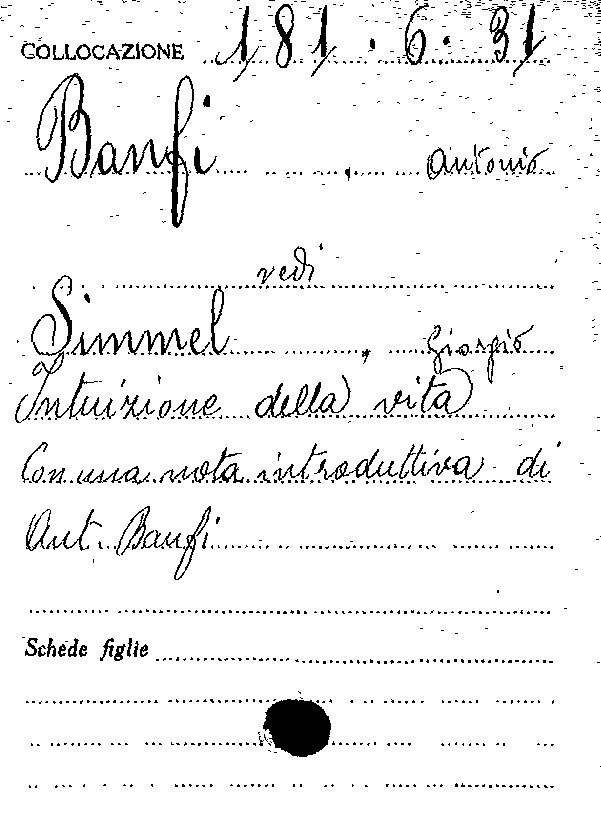 COLLOCAZIONE 181.6.31
Banfi, Antonio
vedi
Simmel, Giorgio
Intuizione della vita
Con una nota introduttiva di
Ant. Banfi
Schede figlie